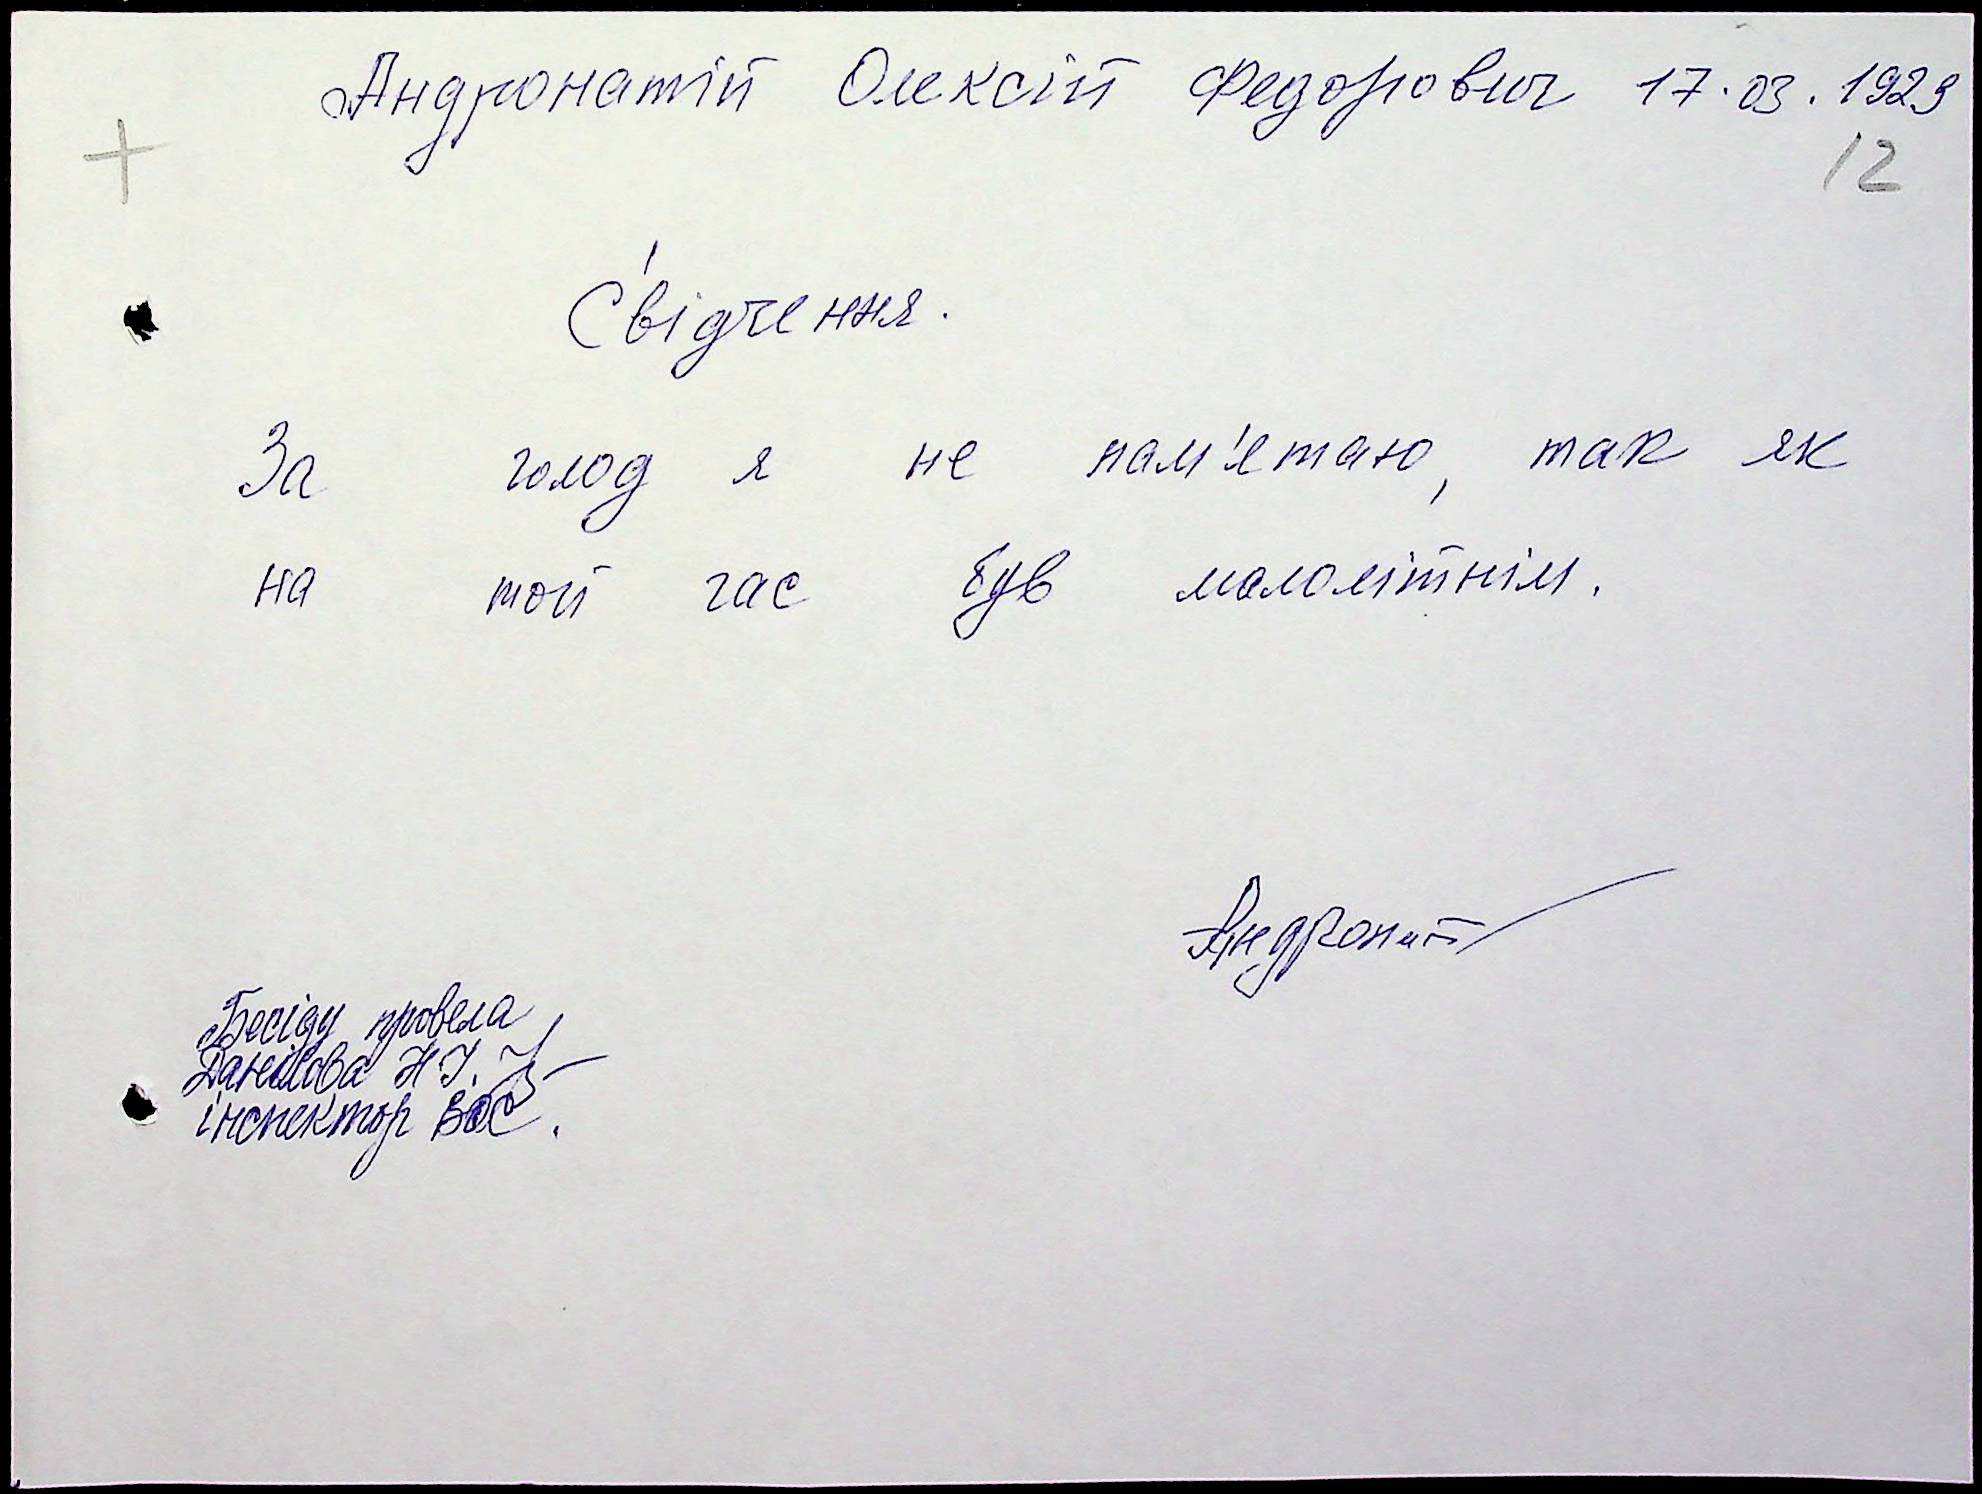 Андронатій Олексій Федорович 17.03.1929
+ 12
Свідчення.
За голод я не пам'ятаю, так як
на той час був малолітнім.
Андронат
Бесіду провела
Данілова Н.І.
інспектор ВОС.